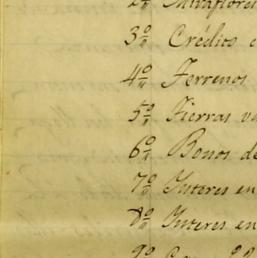 2º Miraflores
3º Créditos
4º Terrenos
5º Tierras
6º Bonos de
7º Interes en
8º Interes en
9º